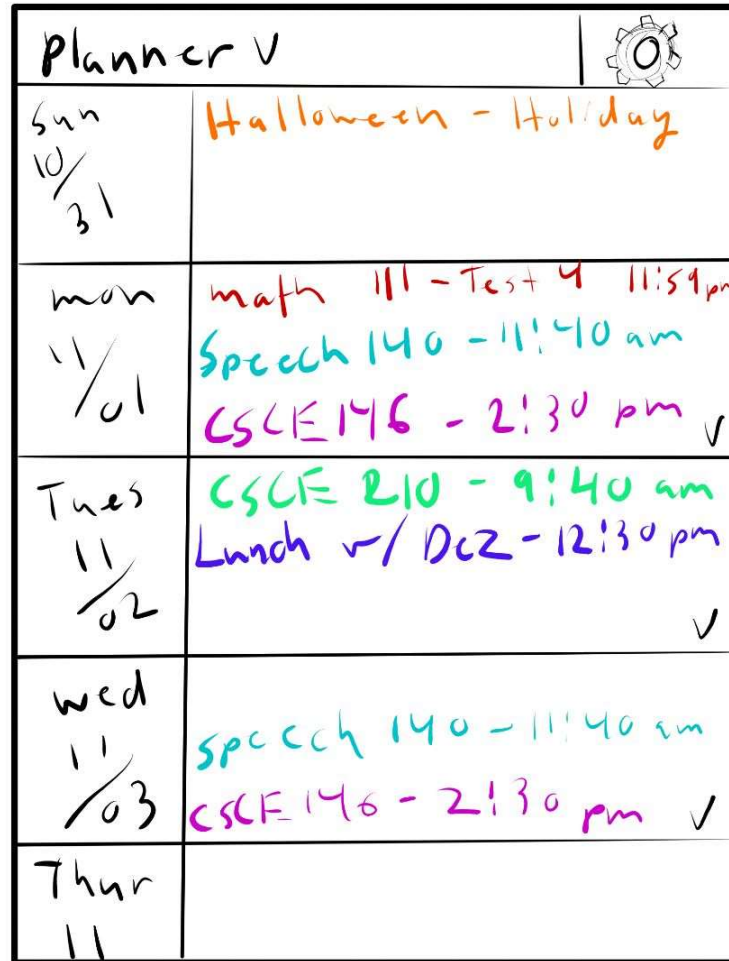 Planner V
Sun
10/31
Halloween - Holiday
mon
11/01
math 111 - Test 4 11:59 pm
Speech 140 - 11:40 am
CSCE 146 - 2:30 pm V
Tues
11/02
CSCE 210 - 9:40 am
Lunch w/ Dez - 12:30 pm
V
wed
11/03
speech 140 - 11:40 am
CSCE 146 - 2:30 pm V
Thur
11